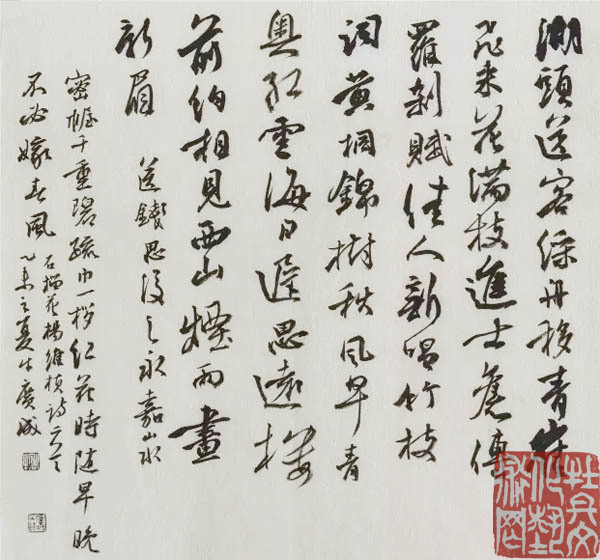 潮頭送客綵舟移青雀
飛來花滿枝進士舊傳
羅剎賦佳人新唱竹枝
詞黄桐錦樹秋風早青
奥紅雲海日遲思遠樓
前約相見西山煙雨畫
新眉 送錢思復之永嘉山水
密幄千重碧疏巾一拶紅花時随早晚
不必嫁春風 石榴花楊維楨詩二首
乙未之夏牛廣成